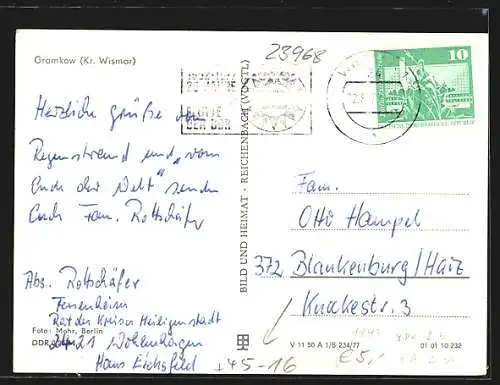 Gramkow (Kr. Wismar)
23968
10
DER DDR
Herzliche Grüße vom
Regenstrand und „vom
Ende der Welt" senden
Euch Fam. Rottschäfer
Abs. Rottschäfer
Ferienheim
Rat des Kreises Heiligenstadt
2421 Wohlenhagen
Haus Eichsfeld
Foto: Mohr, Berlin
BILD UND HEIMAT · REICHENBACH (VOGTL)
Fam.
Otto Hampel
372 Blankenburg/Harz
Knackestr. 3
V 11 50 A 1/S 234/77
01 01 10 232
45-16
€5,-